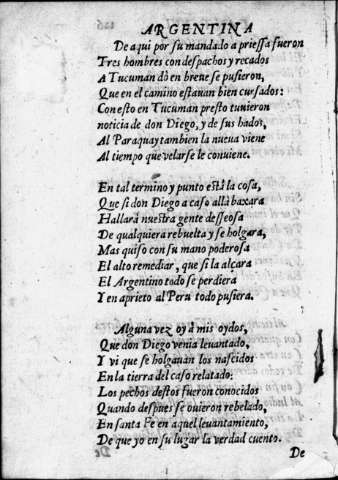 ARGENTINA
De aqui por su mandado a priessa fueron
Tres hombres con despachos y recados
A Tucuman dò en breue se pusieron,
Que en el camino estauan bien cursados:
Con esto en Tucuman presto tuuieron
noticia de don Diego, y de sus hados,
Al Paraquay tambien la nueua viene
Al tiempo que velarse le conuiene.
En tal termino y punto està la cosa,
Que si don Diego a caso allà baxara
Hallarà nuestra gente desseosa
De qualquiera rebuelta y se holgara,
Mas quiso con su mano poderosa
El alto remediar, que si la alçara
El Argentino todo se perdiera
Y en aprieto al Peru todo pusiera.
Alguna vez oy à mis oydos,
Que don Diego venia leuantado,
Y vi que se holgauan los nascidos
En la tierra del caso relatado:
Los pechos destos fueron conocidos
Quando despues se ouieron rebelado,
En santa Fe en aquel leuantamiento,
De que yo en su lugar la verdad cuento.
De